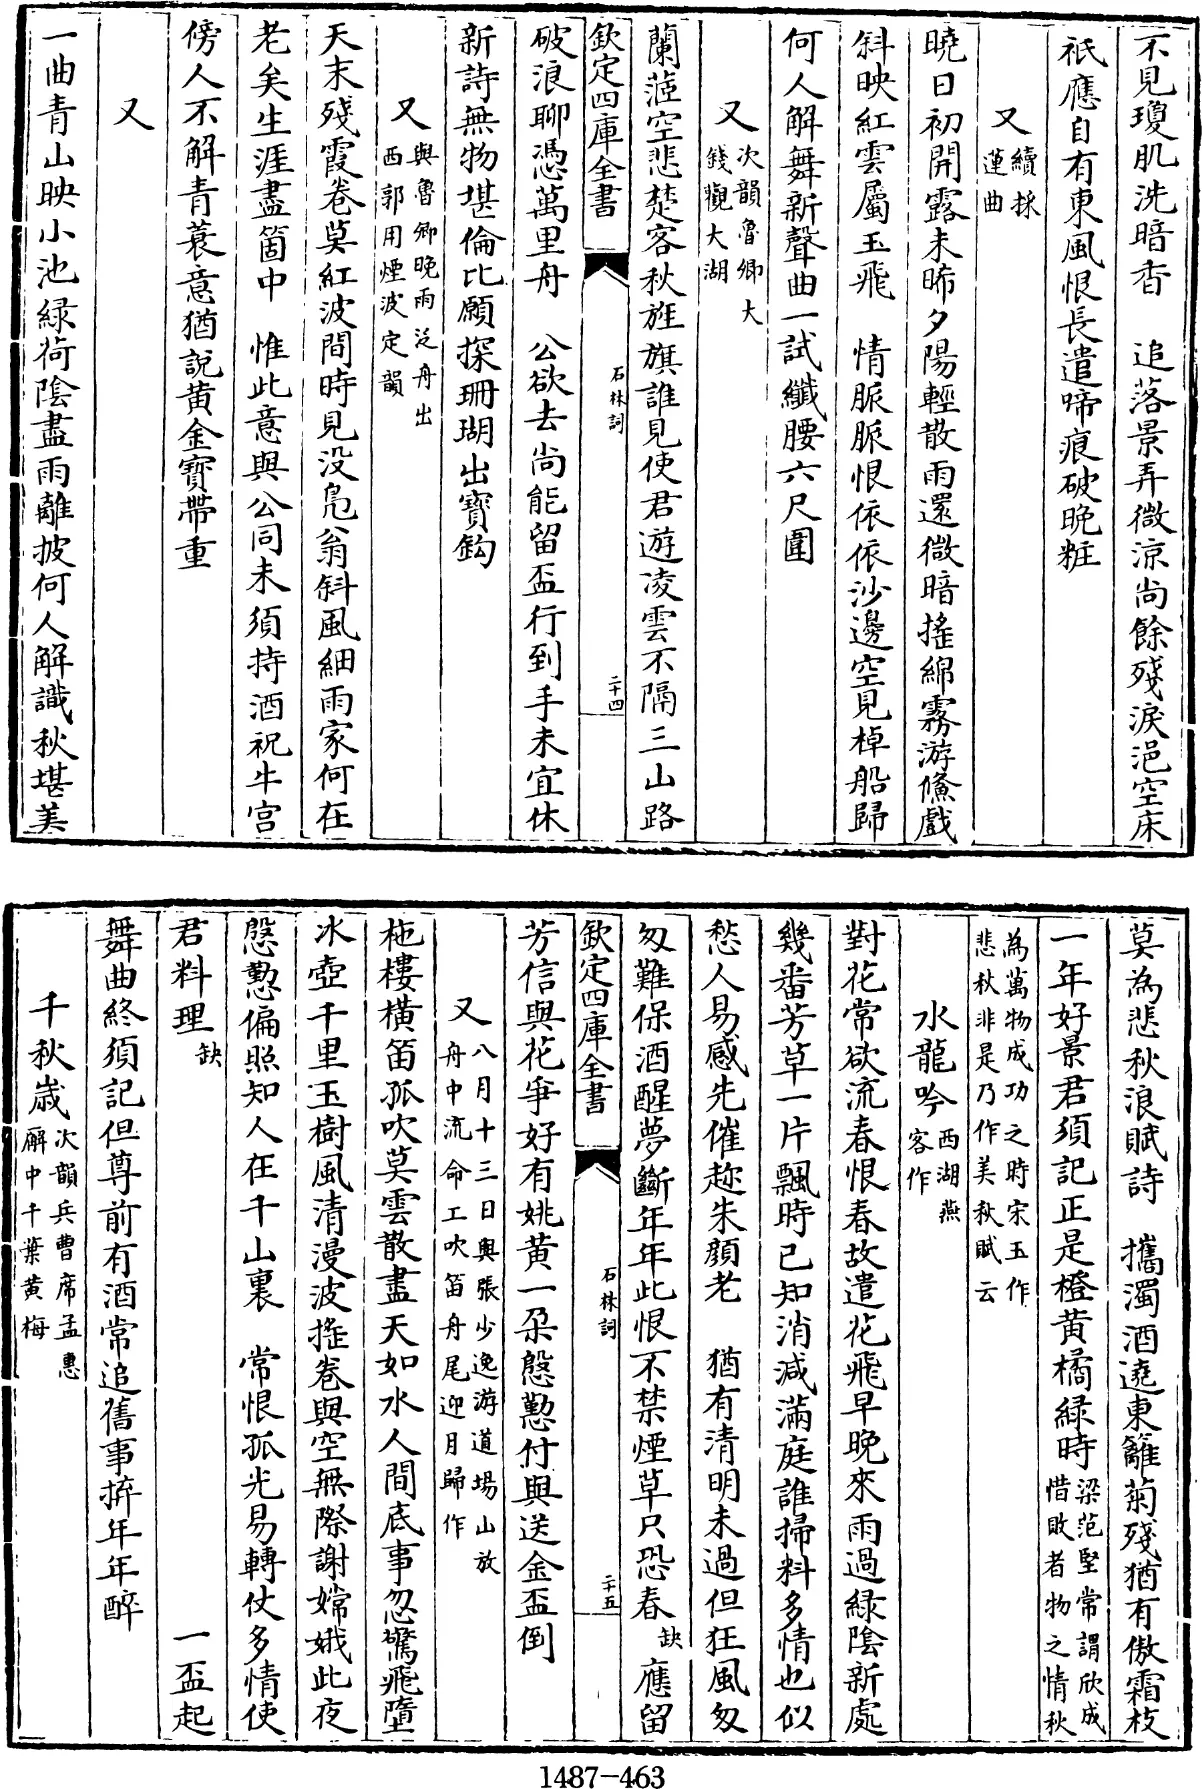 不見瓊肌洗暗香　追落景弄微涼尚餘殘淚浥空床
祇應自有東風恨長遣啼痕破晩粧
又續採蓮曲
曉日初開露未晞夕陽輕散雨還微暗搖綿霧游鯈戲
斜映紅雲屬玉飛　情脈脈恨依依沙邊空見棹船歸
何人解舞新聲曲一試纖腰六尺圍
又次韻魯卿大錢觀大湖
蘭茝空悲楚客秋旌旗誰見使君遊凌雲不隔三山路
欽定四庫全書　石林詞　二十四
破浪聊憑萬里舟　公欲去尚能留盃行到手未宜休
新詩無物堪倫比願探珊瑚出寶鈎
又與魯卿晚雨泛舟出西郭用煙波定韻
天末殘霞卷莫紅波間時見没鳧翁斜風細雨家何在
老矣生涯盡箇中　惟此意與公同未須持酒祝牛宫
傍人不解青蓑意猶說黄金寶帶重
又
一曲青山映小池緑荷陰盡雨離披何人解識秋堪美
莫為悲秋浪賦詩　攜濁酒遶東籬菊殘猶有傲霜枝
一年好景君須記正是橙黄橘緑時梁范堅常謂欣成惜敗者物之情秋
為萬物成功之時宋玉作悲秋非是乃作美秋賦云
水龍吟西湖燕客作
對花常欲流春恨春故遣花飛早晚來雨過緑陰新處
幾番芳草一片飄時已知消減滿庭誰掃料多情也似
愁人易感先催趂朱顔老　猶有清明未過但狂風匆
匆難保酒醒夢斷年年此恨不禁煙草只恐春缺應留
欽定四庫全書　石林詞　二十五
芳信與花爭好有姚黄一朶慇懃付與送金盃倒
又八月十三日與張少逸游道場山放舟中流命工吹笛舟尾迎月歸作
柂樓横笛孤吹莫雲散盡天如水人間底事忽驚飛墮
冰壺千里玉樹風清漫波搖卷與空無際謝嫦娥此夜
慇懃偏照知人在千山裏　常恨孤光易轉仗多情使
君料理缺　一盃起
舞曲終須記但尊前有酒常追舊事拚年年醉
千秋歲次韻兵曹席孟惠廨中千葉黄梅
1487-463